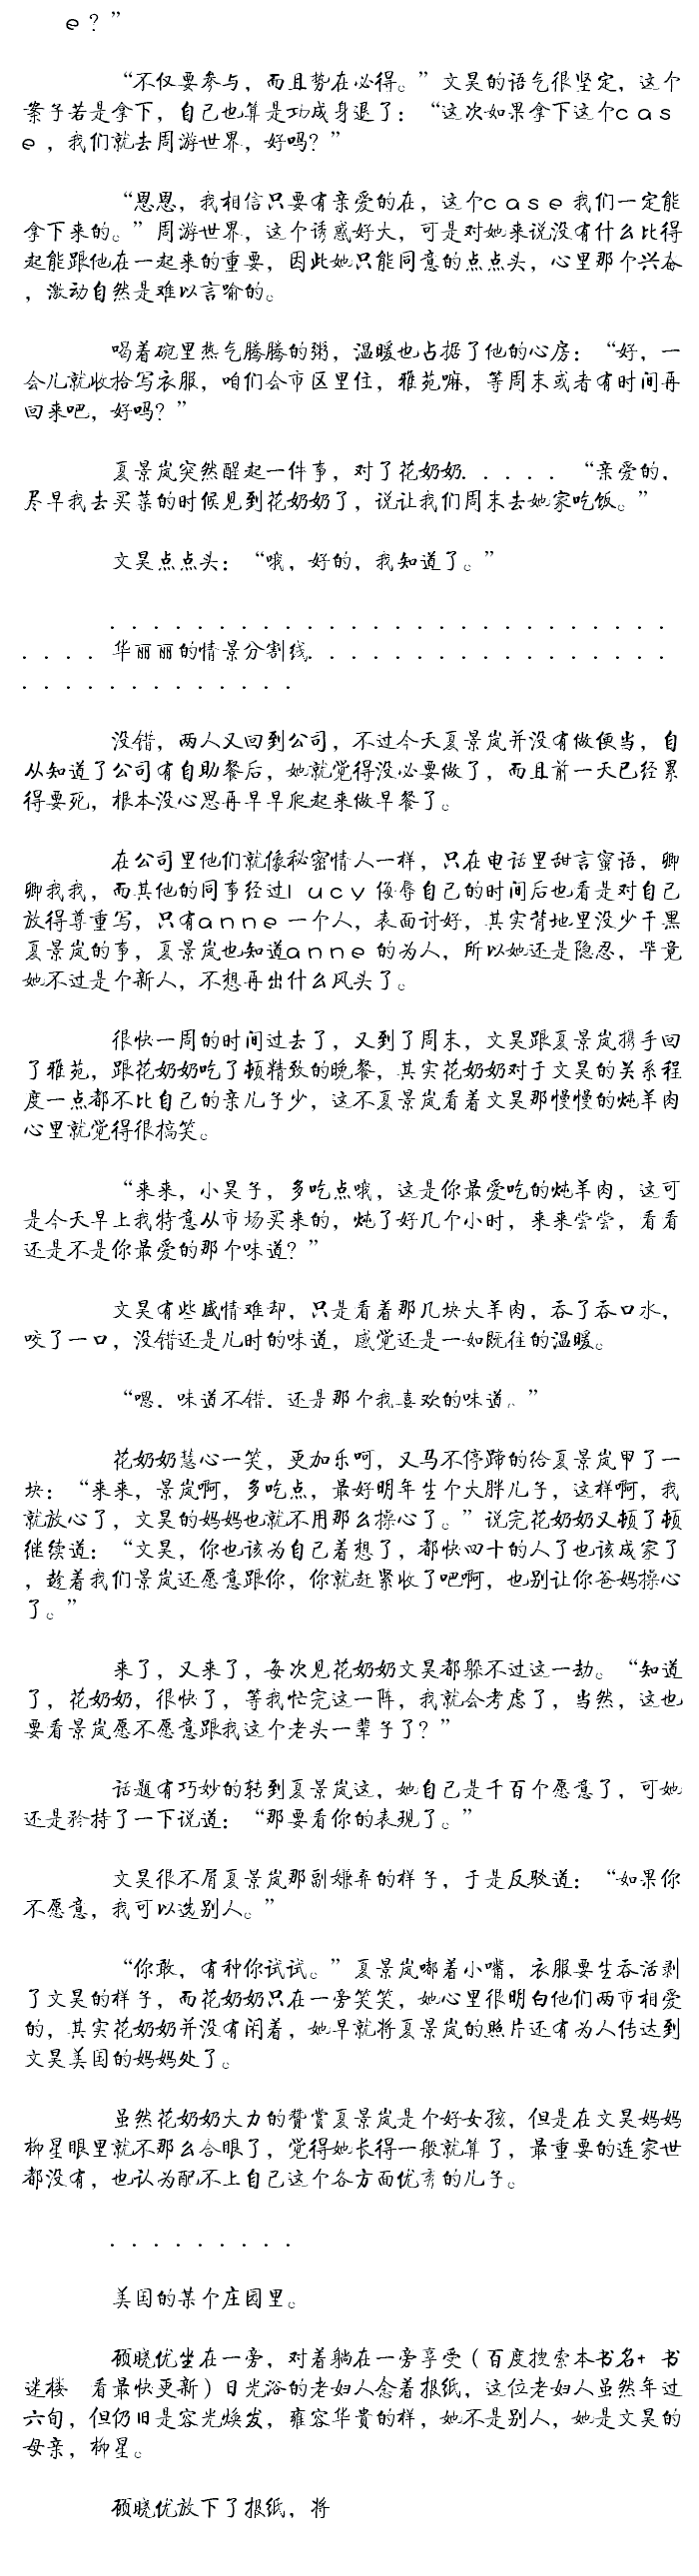 e？”
“不仅要参与，而且势在必得。”文昊的语气很坚定，这个
案子若是拿下，自己也算是功成身退了：“这次如果拿下这个cas
e，我们就去周游世界，好吗？”
“恩恩，我相信只要有亲爱的在，这个case我们一定能
拿下来的。”周游世界，这个诱惑好大，可是对她来说没有什么比得
起能跟他在一起来的重要，因此她只能同意的点点头，心里那个兴奋
，激动自然是难以言喻的。
喝着碗里热气腾腾的粥，温暖也占据了他的心房：“好，一
会儿就收拾写衣服，咱们会市区里住，雅苑嘛，等周末或者有时间再
回来吧，好吗？”
夏景岚突然醒起一件事，对了花奶奶．．．．．“亲爱的，
尽早我去买菜的时候见到花奶奶了，说让我们周末去她家吃饭。”
文昊点点头：“哦，好的，我知道了。”
．．．．．．．．．．．．．．．．．．．．．．．．．．
．．．．华丽丽的情景分割线．．．．．．．．．．．．．．．．．
．．．．．．．．．．．．．
没错，两人又回到公司，不过今天夏景岚并没有做便当，自
从知道了公司有自助餐后，她就觉得没必要做了，而且前一天已经累
得要死，根本没心思再早早爬起来做早餐了。
在公司里他们就像秘密情人一样，只在电话里甜言蜜语，卿
卿我我，而其他的同事经过lucy侮辱自己的时间后也看是对自己
放得尊重写，只有anne一个人，表面讨好，其实背地里没少干黑
夏景岚的事，夏景岚也知道anne的为人，所以她还是隐忍，毕竟
她不过是个新人，不想再出什么风头了。
很快一周的时间过去了，又到了周末，文昊跟夏景岚携手回
了雅苑，跟花奶奶吃了顿精致的晚餐，其实花奶奶对于文昊的关系程
度一点都不比自己的亲儿子少，这不夏景岚看着文昊那慢慢的炖羊肉
心里就觉得很搞笑。
“来来，小昊子，多吃点哦，这是你最爱吃的炖羊肉，这可
是今天早上我特意从市场买来的，炖了好几个小时，来来尝尝，看看
还是不是你最爱的那个味道？”
文昊有些盛情难却，只是看着那几块大羊肉，吞了吞口水，
咬了一口，没错还是儿时的味道，感觉还是一如既往的温暖。
“嗯，味道不错，还是那个我喜欢的味道。”
花奶奶慧心一笑，更加乐呵，又马不停蹄的给夏景岚甲了一
块：“来来，景岚啊，多吃点，最好明年生个大胖儿子，这样啊，我
就放心了，文昊的妈妈也就不用那么操心了。”说完花奶奶又顿了顿
继续道：“文昊，你也该为自己着想了，都快四十的人了也该成家了
，趁着我们景岚还愿意跟你，你就赶紧收了吧啊，也别让你爸妈操心
了。”
来了，又来了，每次见花奶奶文昊都躲不过这一劫。“知道
了，花奶奶，很快了，等我忙完这一阵，我就会考虑了，当然，这也
要看景岚愿不愿意跟我这个老头一辈子了？”
话题有巧妙的转到夏景岚这，她自己是千百个愿意了，可她
还是矜持了一下说道：“那要看你的表现了。”
文昊很不屑夏景岚那副嫌弃的样子，于是反驳道：“如果你
不愿意，我可以选别人。”
“你敢，有种你试试。”夏景岚嘟着小嘴，衣服要生吞活剥
了文昊的样子，而花奶奶只在一旁笑笑，她心里很明白他们两市相爱
的，其实花奶奶并没有闲着，她早就将夏景岚的照片还有为人传达到
文昊美国的妈妈处了。
虽然花奶奶大力的赞赏夏景岚是个好女孩，但是在文昊妈妈
柳星眼里就不那么合眼了，觉得她长得一般就算了，最重要的连家世
都没有，也认为配不上自己这个各方面优秀的儿子。
．．．．．．．．．
美国的某个庄园里。
顾晓优坐在一旁，对着躺在一旁享受（百度搜索本书名+ 书
迷楼 看最快更新）日光浴的老妇人念着报纸，这位老妇人虽然年过
六旬，但仍旧是容光焕发，雍容华贵的样，她不是别人，她是文昊的
母亲，柳星。
顾晓优放下了报纸，将